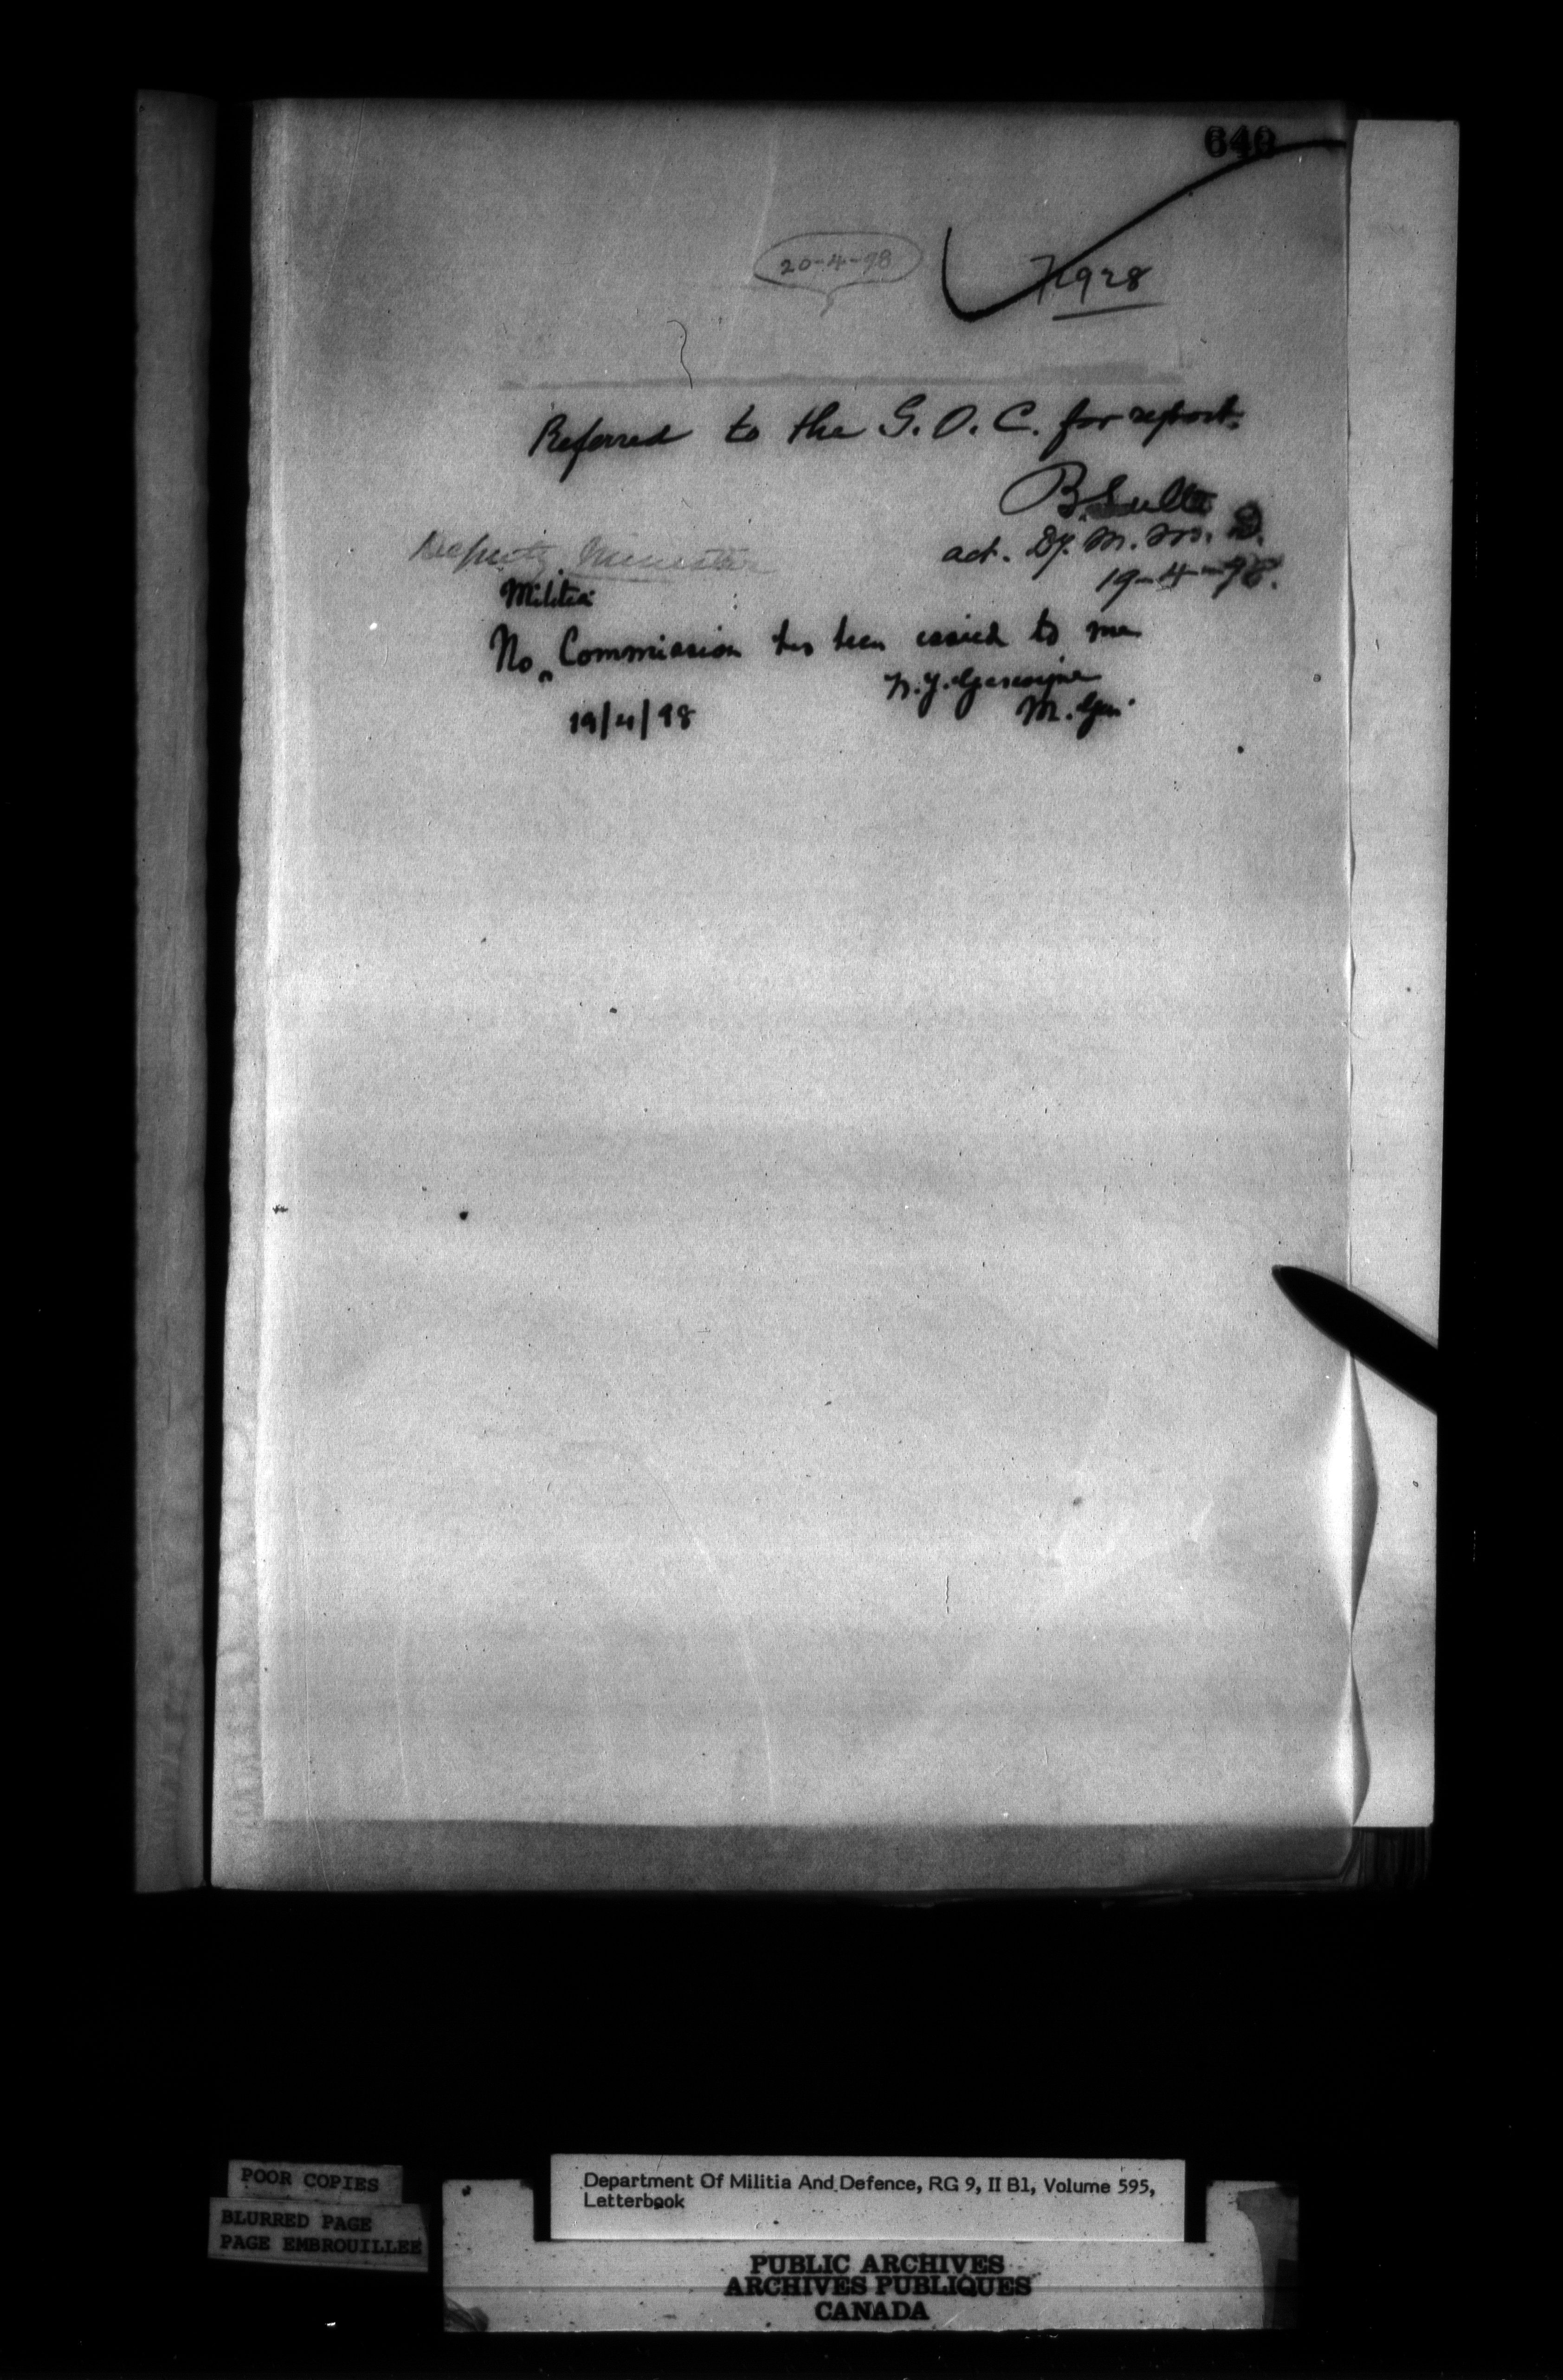 640
20-4-98
71928
Referred to the G. O. C. for report.
B. Sulte
act. Dy. M. M. D.
19-4-98.
Deputy Minister
Militia
No ‸ Commission has been issued to me
W. J. Gascoigne
M. Gen.
19/4/98
POOR COPIES
BLURRED PAGE
PAGE EMBROUILLEE
Department Of Militia And Defence, RG 9, II B1, Volume 595,
Letterbook
PUBLIC ARCHIVES
ARCHIVES PUBLIQUES
CANADA